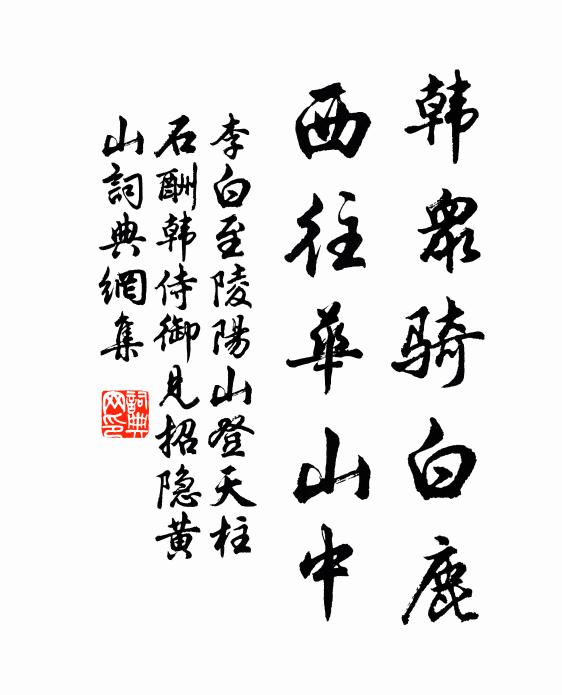 韩衆骑白鹿
西往華山中
李白至陵陽山登天柱
石酬韩侍御見招隐黄
山詞典網集
詞典
网印